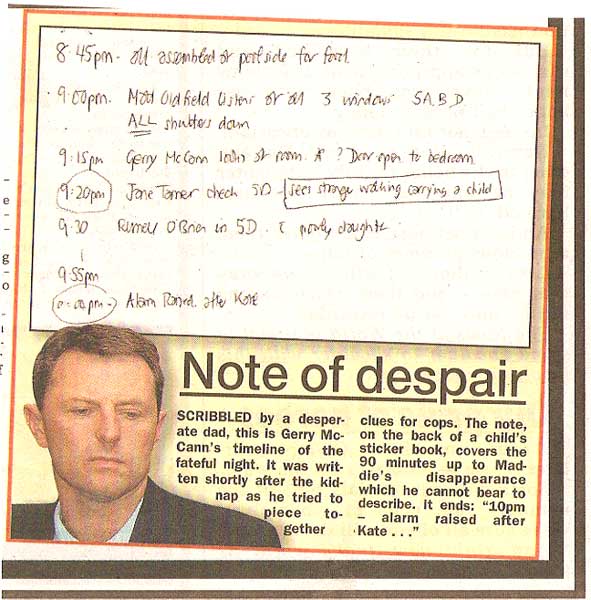 8.45pm. all assembled at poolside for food
9.00pm. Matt Oldfield listens at all 3 windows 5A,B,D
ALL shutters down
9.15pm Gerry McCann looks at room A ? Door open to bedroom
9.20pm Jane Tanner check 5D - sees stranger walking carrying a child
9.30 Russell O'Brien in 5D. poorly daughter
9.55pm
10.00pm - Alarm Raised after Kate
Note of despair
SCRIBBLED by a desper-
ate dad, this is Gerry Mc-
Cann's timeline of the
fateful night. It was writ-
ten shortly after the kid-
nap as he tried to
piece to-
gether
clues for cops. The note,
on the back of a child's
sticker book, covers the
90 minutes up to Mad-
die's disappearance
which he cannot bear to
describe. It ends: "10pm
– alarm raised after
Kate . . ."